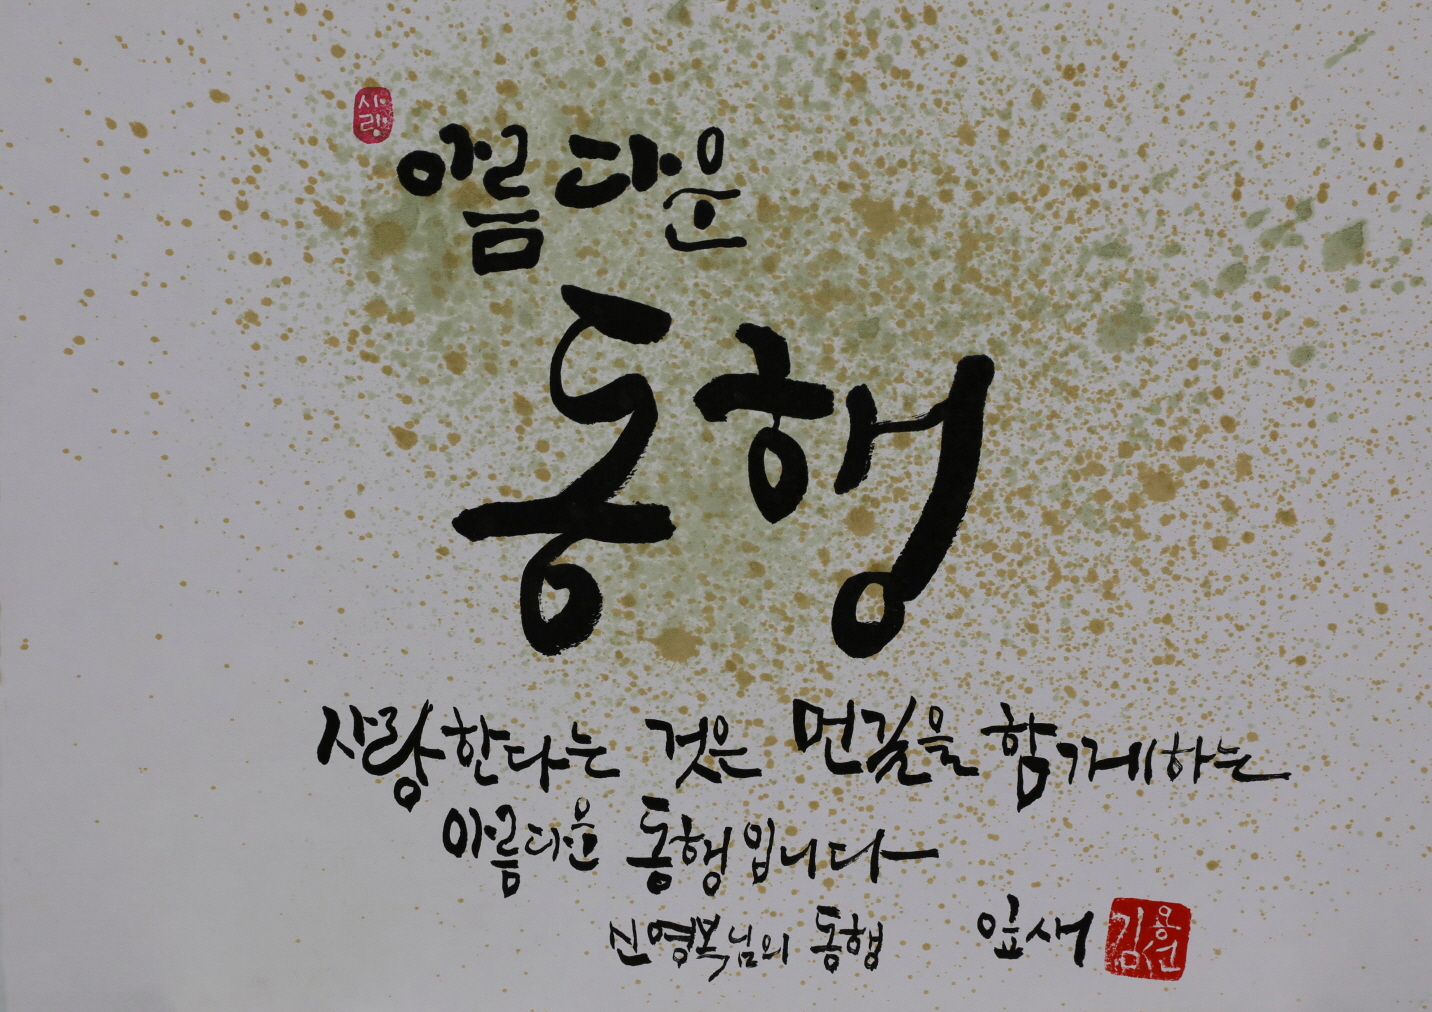 사랑
아름다운
동행
사랑한다는 것은 먼길을 함께하는
아름다운 동행입니다
신영복님의 동행
잎새 김용선